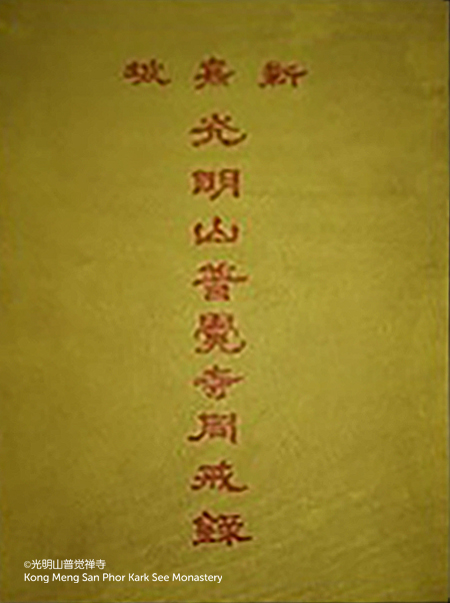 新嘉坡
光明山普覺寺同戒錄
©光明山普觉禅寺
Kong Meng San Phor Kark See Monastery